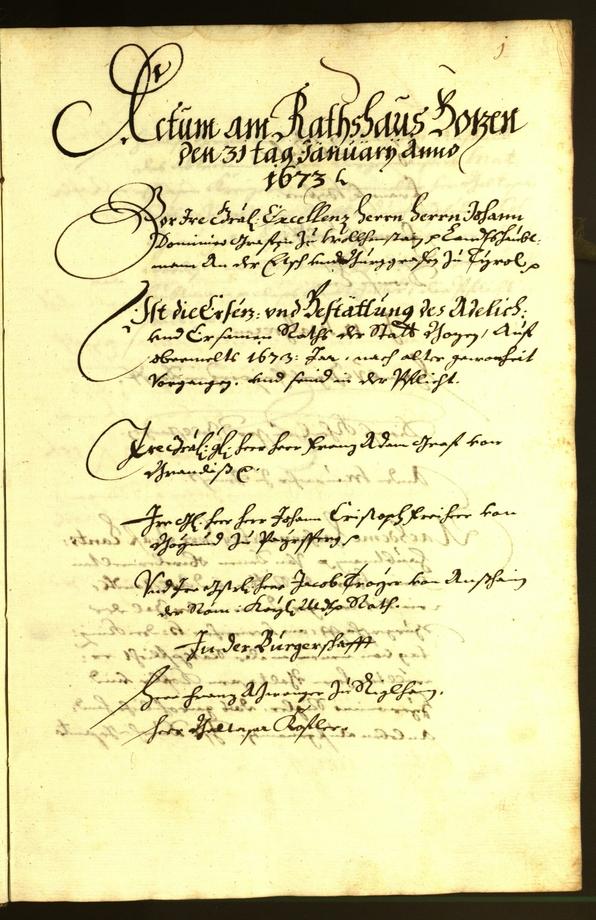 1
Actum am Rathshaus Botzen
den 31 tag January Anno
1673
Vor Ire Gräfl: Excellenz Herrn Herrn Johann
Dominico Grafen zu Wolkhenstain Landtshaubt-
mann An der Etsch und Burggrafen zu Tyrol
Ist die Ersez: vnd Bestättung des Adelich:
vnd Ersamen Raths der Statt Bozen, Auf
obermelts 1673: Jar, nach alter gewonheit
vorgangen. vnd seind in der Pflicht.
Ire Gräfl: herr herr Franz Adam Graf von
Brandiß
Ire herr herr Johann Cristoph Freiherr von
zu Payrsperg
Vnd Ire herr Jacob Troyer von
der Röm: Kayl: Rath.
In der Burgerschafft
Herr Franz zu
herr Balthasar